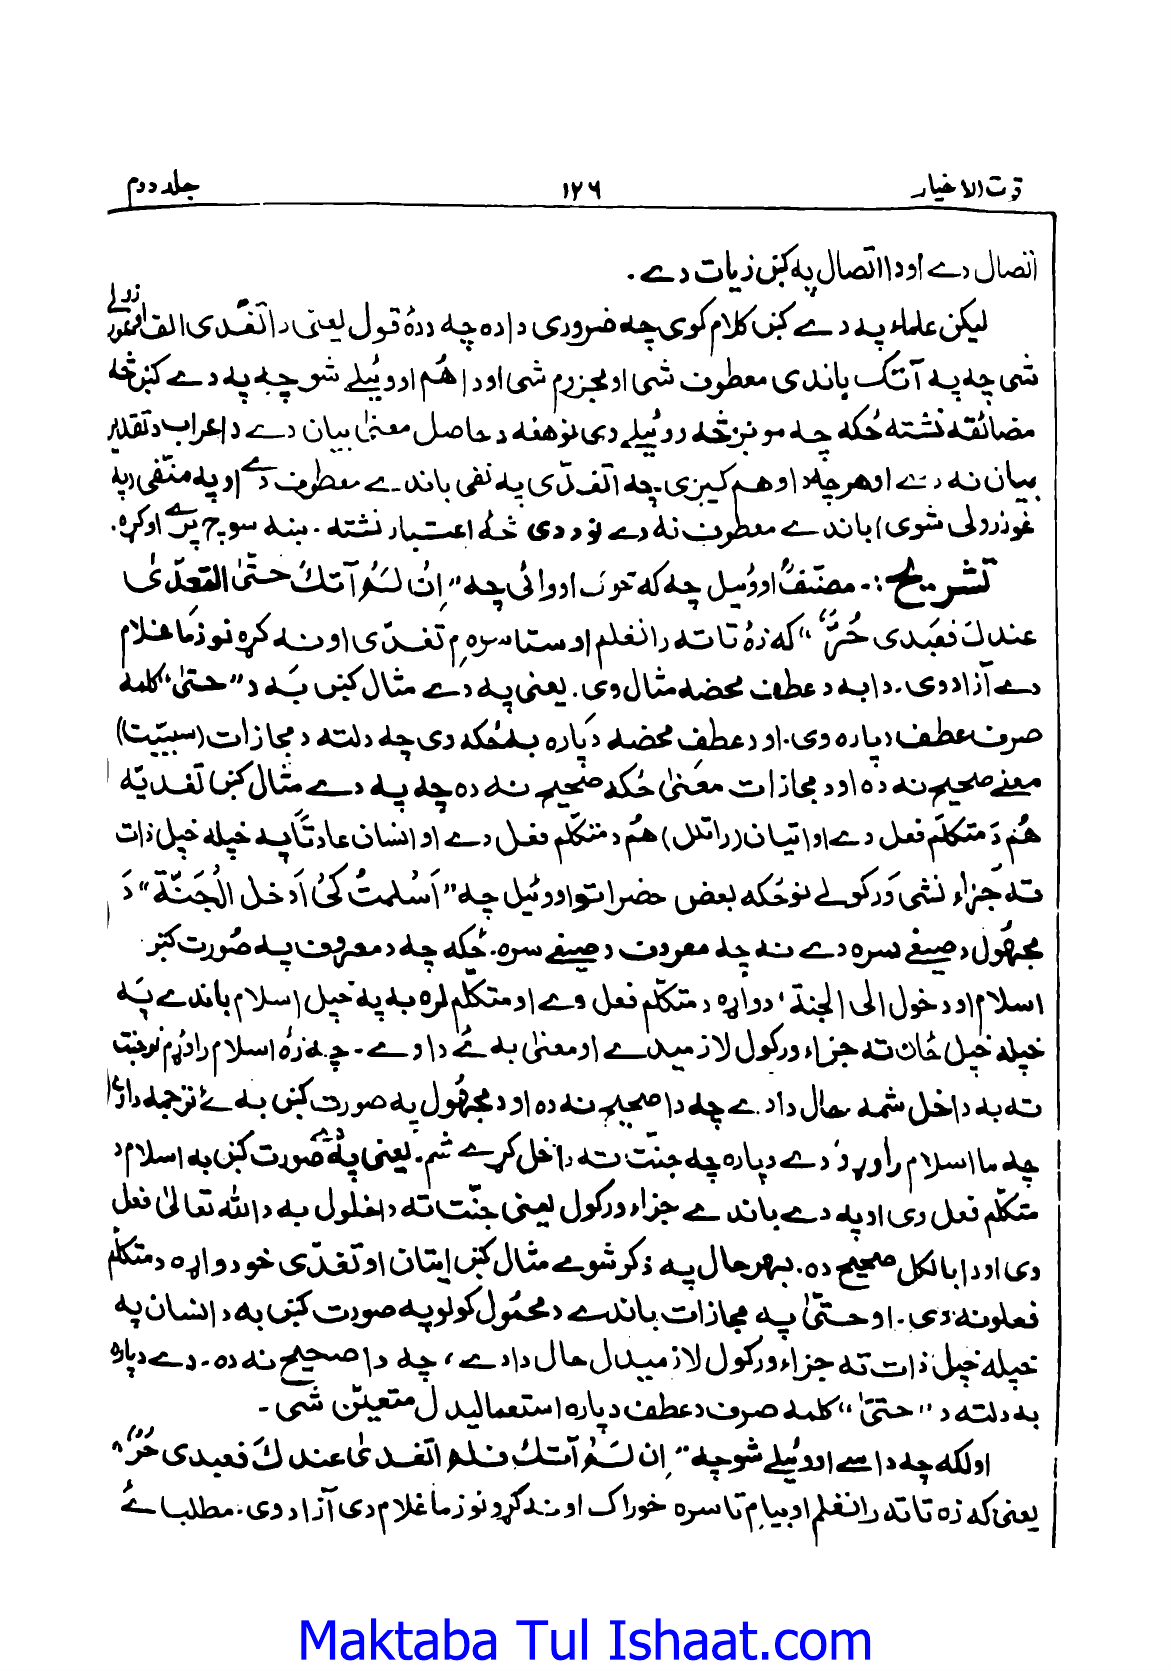 قوت الاخیار ١٢٦ جلد دوم
اتصال دے او دا اتصال په کښ زیات دے .
لیکن علماء په دے کښ کلام کوی چه ضروری دا ده چه دده قول یعنی د اتغدی الف
شی چه په آتک باندی معطوف شی او مجزوم شی او دا هم اووئیلے شو چه په دے کښ څه
مضائقه نشته ځکه چه مونږ څه وئیلے دی نو هغه د حاصل معنیٰ بیان دے د اعراب د تقدیر
بیان نه دے او هر چه دا وهم کیږی چه اتغدّی په نفی باندے معطوف دے او په منفی (په
غوزولی شوی) باندے معطوف نه دے نو د دی څه اعتبار نشته . ښه سوچ پرے اوکړه .
تشریح :- مصنفؒ اووئیل چه که څوک اووائی چه "اِنْ لَمْ آتِكَ حتّیٰ اتغدّیٰ
عندك فعبدی حُرٌّ" که زهٔ تا ته رانغلم او ستا سره م تغدّی اونه کړه نو زما غلام
دے آزاد وی . دا به د عطف محضه مثال وی . یعنی په دے مثال کښ به د "حتیٰ" کلمه
صرف عطف دپاره وی . او د عطف محضه دپاره به ځکه وی چه دلته د مجازات (سببیّت)
معنے صحیح نه ده او د مجازات معنیٰ ځکه صحیح نه ده چه په دے مثال کښ تغدیه
هُم دَ متکلّم فعل دے او اتیان (راتلل) هُم د متکلّم فعل دے او انسان عادتًا په خپله خپل ذات
ته جَزاء نشی وَرکولے نو ځکه بعض حضراتو اووئیل چه "اَسْلمتُ کَیْ اَدخل الْجَنّةَ" دَ
مجهُول د صیغے سره دے نه چه معروف د صیغے سره . ځکه چه د معروف په صُورت کښ
اسلام او دخول الی الجنة ، دواړه د متکلّم فعل وے او متکلّم لره به په خپل اسلام باندے په
خپله خپل ځان ته جزاء ورکول لازمیدے او معنیٰ به ئے دا وے - چه زهٔ اسلام راوړم نو جنت
ته به داخل شمه حال دا دے چه دا صحیح نه ده او د مجهُول په صورت کښ به ئے ترجمه دا
چه ما اسلام راوړو دے دپاره چه جنّت ته داخل کړے شم . یعنی په دے صورت کښ به اسلام د
متکلّم فعل وی او په دے باندے جزاء ورکول یعنی جنّت ته داخلول به د الله تعالیٰ فعل
وی او دا بالکل صحیح ده . بهر حال په ذکر شوے مثال کښ اتیان او تغدّی خو دواړه د متکلّم
فعلونه دی . او حتّیٰ په مجازات باندے د محمُول کولو په صورت کښ به د انسان په
خپله خپل ذات ته جزاء ورکول لازمیدل حال دا دے ، چه دا صحیح نه ده . دے دپاره
به دلته د "حتیٰ" کلمه صرف د عطف دپاره استعمالیدل متعیّن شی .
او لکه چه داسے اووئیلے شو چه "اِن لَمْ آتك فلم اتغدیٰ عندك فعبدی حُرٌّ"
یعنی که زه تا ته رانغلم او بیا م تا سره خوراک اونه کړو نو زما غلام دی آزاد وی . مطلب ئے
Maktaba Tul Ishaat.com